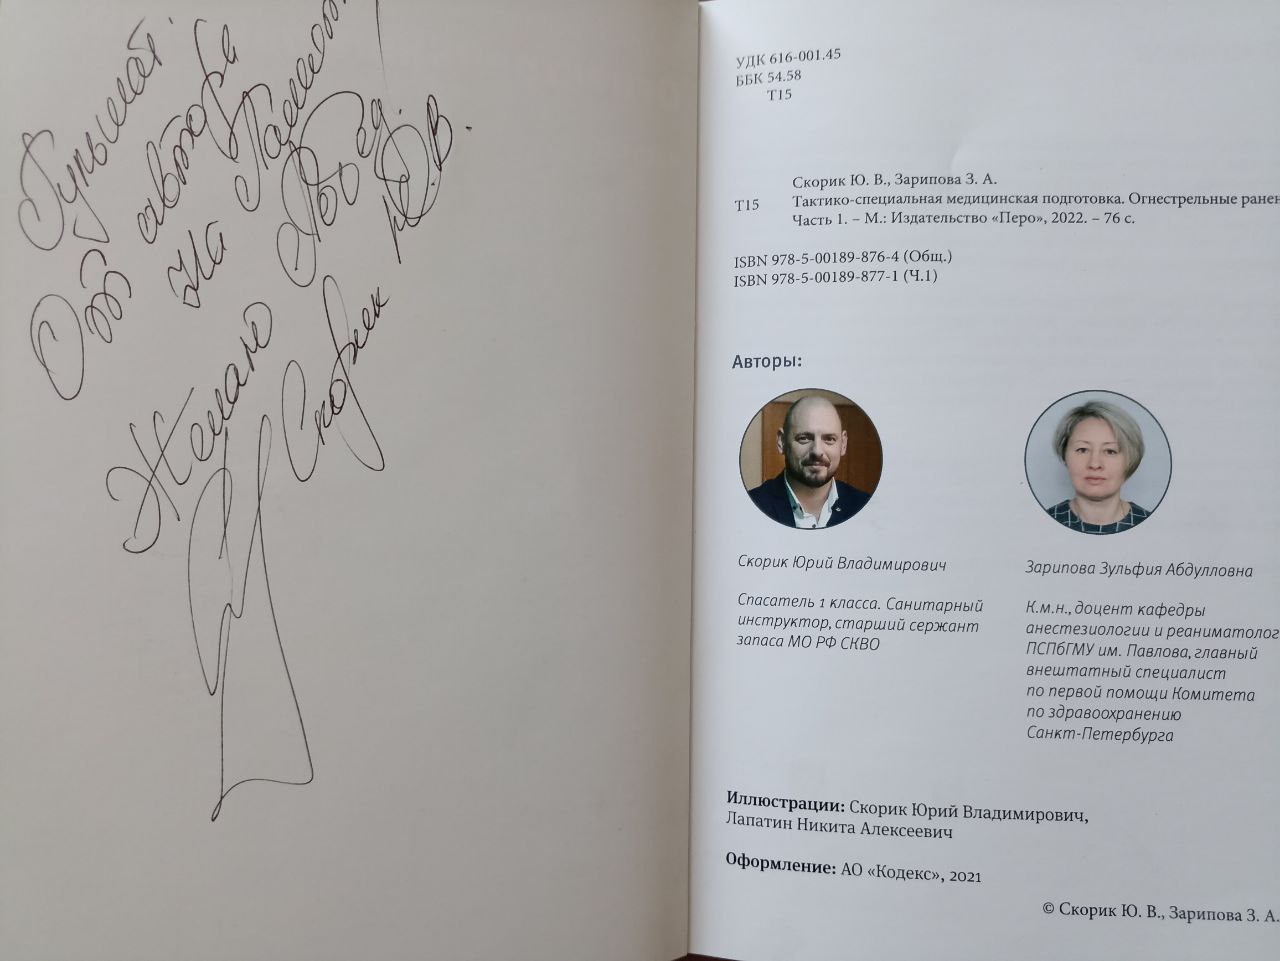 От автора
На Память.
Желаю Побед.
Скорик Ю.В.
УДК 616-001.45
ББК 54.58
Т15
Скорик Ю. В., Зарипова З. А.
Т15 Тактико-специальная медицинская подготовка. Огнестрельные ранен
Часть 1. – М.: Издательство «Перо», 2022. – 76 с.
ISBN 978-5-00189-876-4 (Общ.)
ISBN 978-5-00189-877-1 (Ч.1)
Авторы:
Скорик Юрий Владимирович
Спасатель 1 класса. Санитарный
инструктор, старший сержант
запаса МО РФ СКВО
Зарипова Зульфия Абдулловна
К.м.н., доцент кафедры
анестезиологии и реаниматолог
ПСПбГМУ им. Павлова, главный
внештатный специалист
по первой помощи Комитета
по здравоохранению
Санкт-Петербурга
Иллюстрации: Скорик Юрий Владимирович,
Лапатин Никита Алексеевич
Оформление: АО «Кодекс», 2021
© Скорик Ю. В., Зарипова З. А.